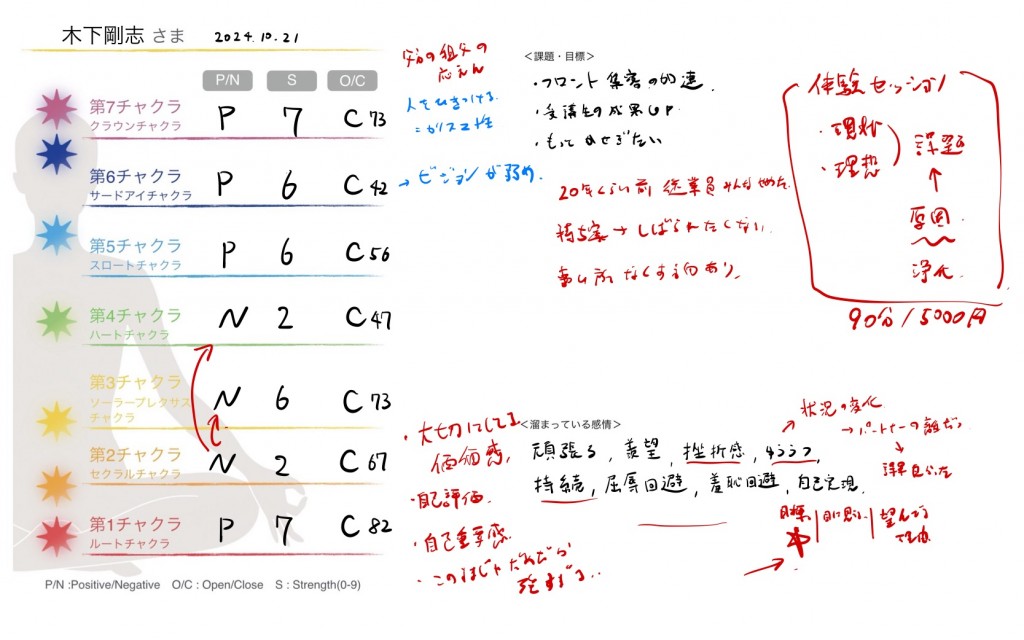 木下剛志 さま 2024.10.21
P/N S O/C
第7チャクラ
クラウンチャクラ
P 7 C 73
第6チャクラ
サードアイチャクラ
P 6 C 42
第5チャクラ
スロートチャクラ
P 6 C 56
第4チャクラ
ハートチャクラ
N 2 C 47
第3チャクラ
ソーラープレクサス
チャクラ
N 6 C 73
第2チャクラ
セクラルチャクラ
N 2 C 67
第1チャクラ
ルートチャクラ
P 7 C 82
P/N :Positive/Negative O/C : Open/Close S : Strength(0-9)
父方の祖父の
応えん
人をひきつける
=カリスマ性
→ ビジョンが弱め.
<課題・目標>
・フロント集客の加速
・受講生の成果UP.
・もっとかせぎたい
20年くらい前 従業員みんな辞めた.
持ち家 → しばられたくない.
事ム所なくす方向あり.
体験セッション
・現状
・理想
課題
↑
原因
浄化
90分 / 5000円
<溜まっている感情>
頑張る, 羨望, 挫折感, ゆううつ,
持続, 屈辱回避, 羞恥回避, 自己実現.
状況の変化
→ パートナーの離だつ
・大切にしてる
価値感,
・自己評価
・自己重要感
・このままじゃだめだから
目標